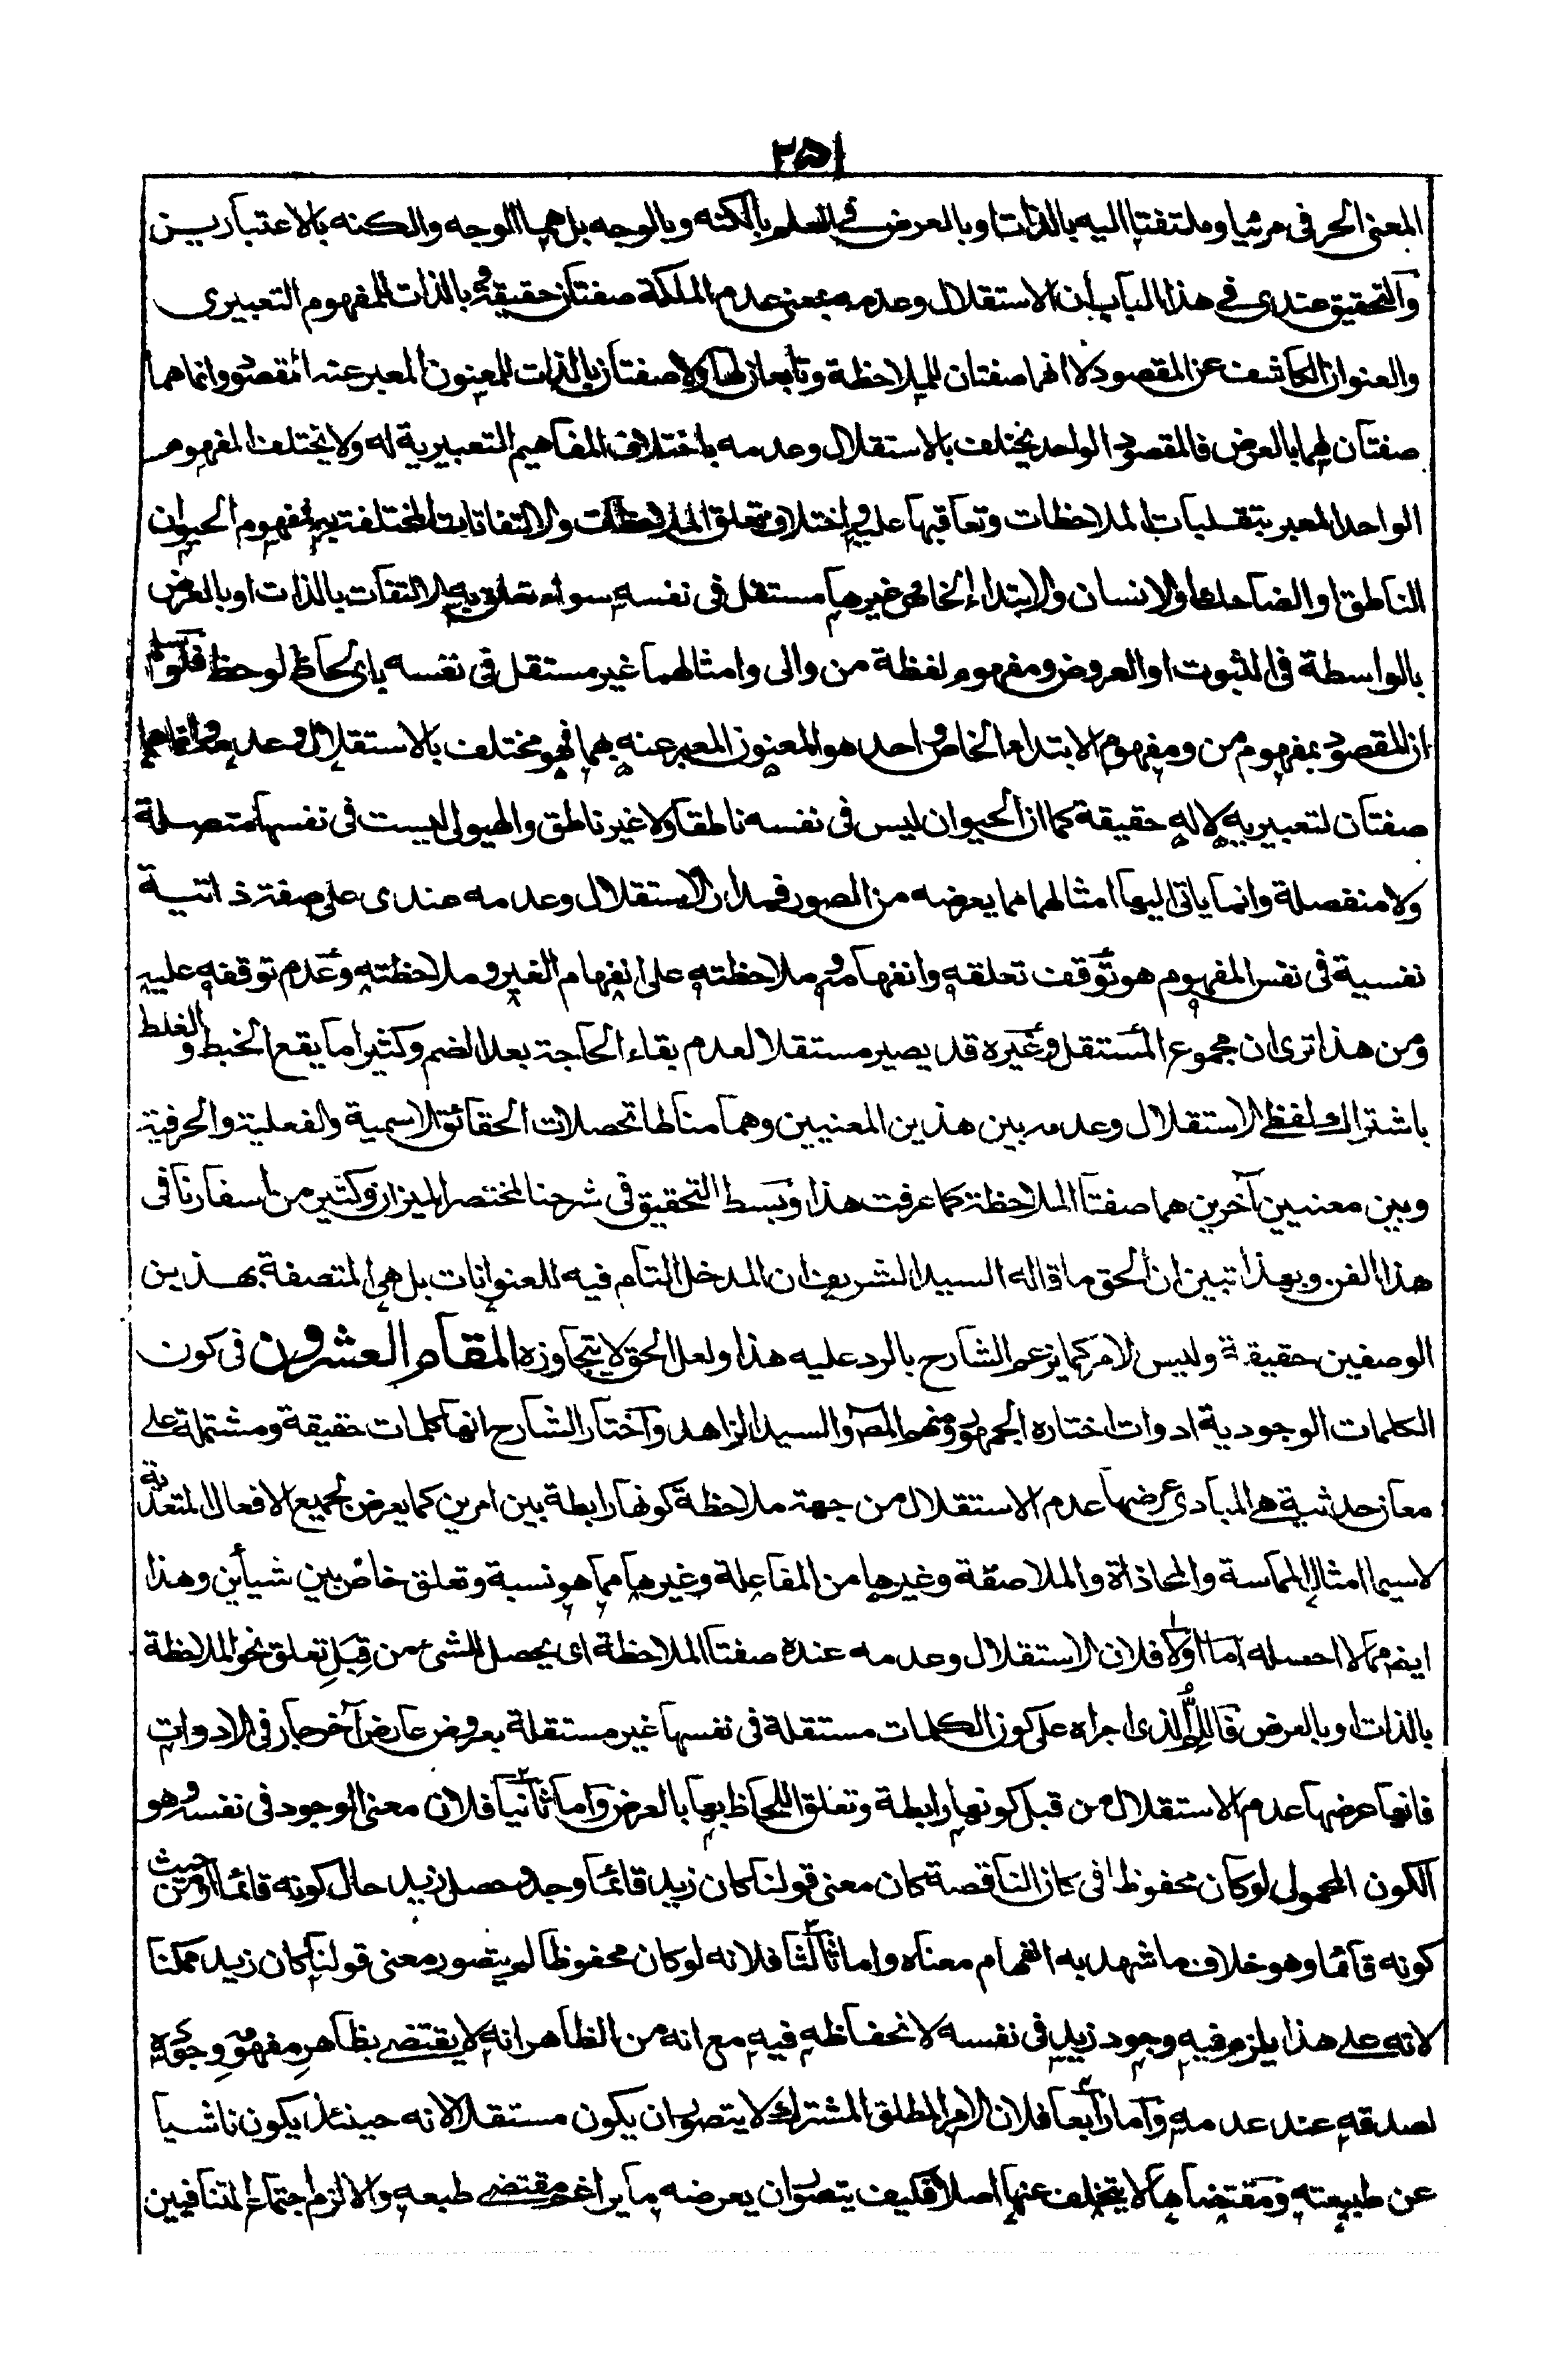 ٢٥١
المعنى الحرفى مرئيا وملتفتا اليه بالذات او بالعرض فى العلم بالكنه وبالوجه بل هما الوجه والكنه بالاعتبارين
والتحقيق عندى فى هذا الباب أن الاستقلال وعدمه بمعنى عدم الملكة صفتان حقيقة وبالذات للمفهوم التعبيرى
والعنوان الكاشف عن المقصود لا انهما صفتان للملاحظة وتابعان لها ولا صفتان بالذات للمعنون المعبر عنه المقصود وانما هما
صفتان لهما بالعرض فالمقصود الواحد يختلف بالاستقلال وعدمه باختلاف المفاهيم التعبيرية له ولا يختلف المفهوم
الواحد المعبر بتقلبات الملاحظات وتعاقبها عليه واختلاف تعلق الملاحظات والالتفاتات المختلفة به فمفهوم الحيوان
الناطق او الضاحك او الانسان والابتداء الخاص وغيرها مستقل فى نفسه سواء تعلق به الالتفات بالذات او بالعرض
بالواسطة فى الثبوت او العروض ومفهوم لفظة من والى وامثالهما غير مستقل فى نفسه باى لحاظ لوحظ فلو سلم
ان المقصود بمفهوم من ومفهوم الابتداء الخاص واحد هو المعنون المعبر عنه بهما فهو مختلف بالاستقلال وعدمه وانما هما
صفتان لتعبيريه لا له حقيقة كما ان الحيوان ليس فى نفسه ناطقا ولا غير ناطق والهيولى ليست فى نفسها متصلة
ولا منفصلة وانما ياتى اليها امثالهما مما يعرضه من الصور فمدار الاستقلال وعدمه عندى على صفة ذاتية
نفسية فى نفس المفهوم هو توقف تعلقه وانفهامه وملاحظته على انفهام الغير وملاحظته وعدم توقفه عليه
ومن هذا ترى ان مجموع المستقل وغيره قد يصير مستقلا لعدم بقاء الحاجة بعد الضم وكثيرا ما يقع الخبط والغلط
باشتراك لفظ الاستقلال وعدمه بين هذين المعنيين وهما مناطا تحصلات الحقائق الاسمية والفعلية والحرفية
وبين معنيين آخرين هما صفتا الملاحظة كما عرفت هذا وبسط التحقيق فى شرحنا لمختصر الميزان وكثير من اسفارنا فى
هذا الفن وبهذا تبين ان الحق ما قاله السيد الشريف ان المدخل التام فيه للعنوانات بل هى المتصفة بهذين
الوصفين حقيقة وليس الامر كما يزعم الشارح بالرد عليه هذا ولعل الحق لا يتجاوزه المقام العشرون فى كون
الكلمات الوجودية ادوات اختاره الجمهور ومنهم المصـ والسيد الزاهد واختار الشارح انها كلمات حقيقة ومشتملة على
معان حدثية هى المبادى عرضها عدم الاستقلال من جهة ملاحظة كونها رابطة بين امرين كما يعرض لجميع الافعال المتعدية
لاسيما امثال المماسة والمحاذاة والملاصقة وغيرها من المفاعلة وغيرها مما هو نسبة وتعلق خاص بين شيأين وهذا
ايضـ مما لا احصله اما اولا فلان الاستقلال وعدمه عنده صفتا الملاحظة اى يحصل للشىء من قِبَلِ تعلق نحو الملاحظة
بالذات او بالعرض فالدليل الذى اجراه على كون الكلمات مستقلة فى نفسها غير مستقلة بعروض عارض آخر جار فى الادوات
فانها عرضها عدم الاستقلال من قبل كونها رابطة وتعلق اللحاظ بها بالعرض واما ثانيا فلان معنى الوجود فى نفسه وهو
الكون المحمولى لو كان محفوظا فى كان الناقصة كان معنى قولنا كان زيد قائما وجد وحصل زيد حال كونه قائما او من حيث
كونه قائما وهو خلاف ما شهد به انفهام معناه واما ثالثا فلانه لو كان محفوظا لم يتصور معنى قولنا كان زيد ممكنا
لانه على هذا يلزم فيه وجود زيد فى نفسه لانحفاظه فيه مع انه من الظاهر انه لا يقتضى بظاهر مفهومه وجوده
لصدقه عند عدمه واما رابعا فلان الامر المطلق المشترك لا يتصور ان يكون مستقلا لانه حينئذ يكون ناشيا
عن طبيعته ومقتضاها لا يتخلف عنها اصلا فكيف يتصور ان يعرضه ما يراغم مقتضى طبعه والا لزم اجتماع المتنافيين